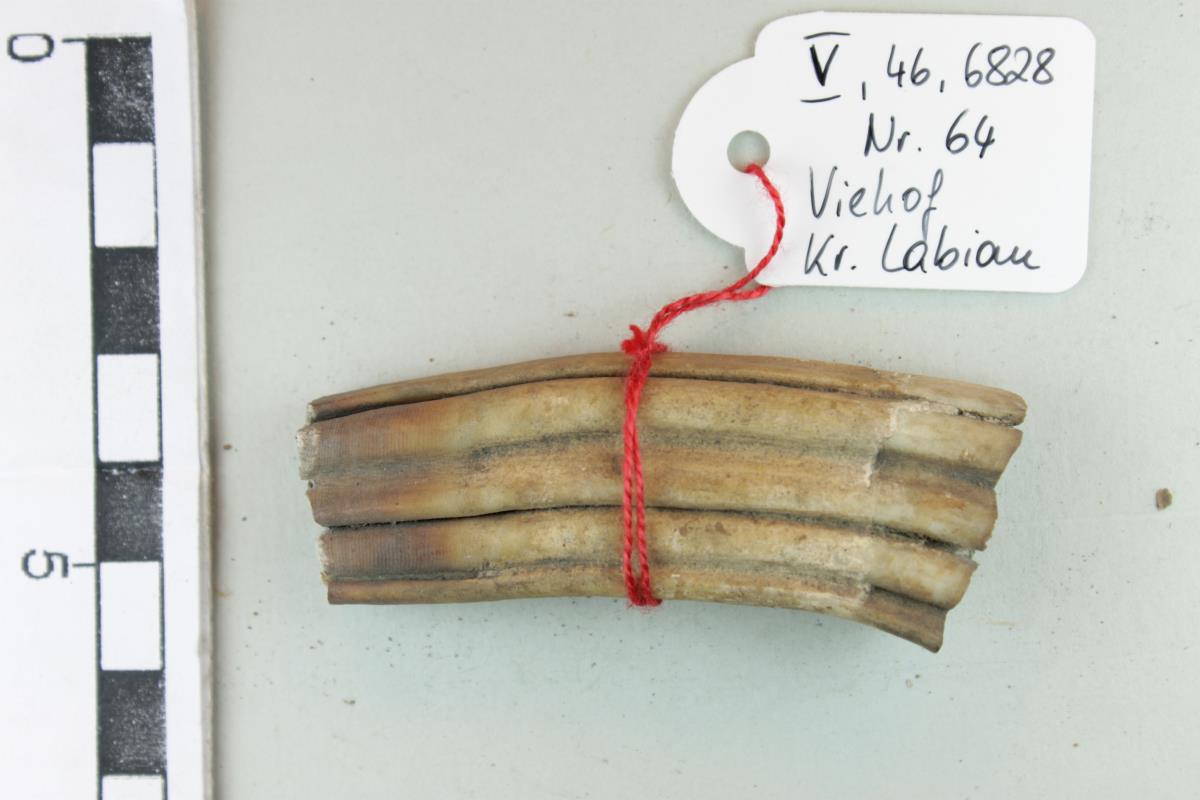 V, 46, 6828
Nr. 64
Viehof
Kr. Labiau
0
5